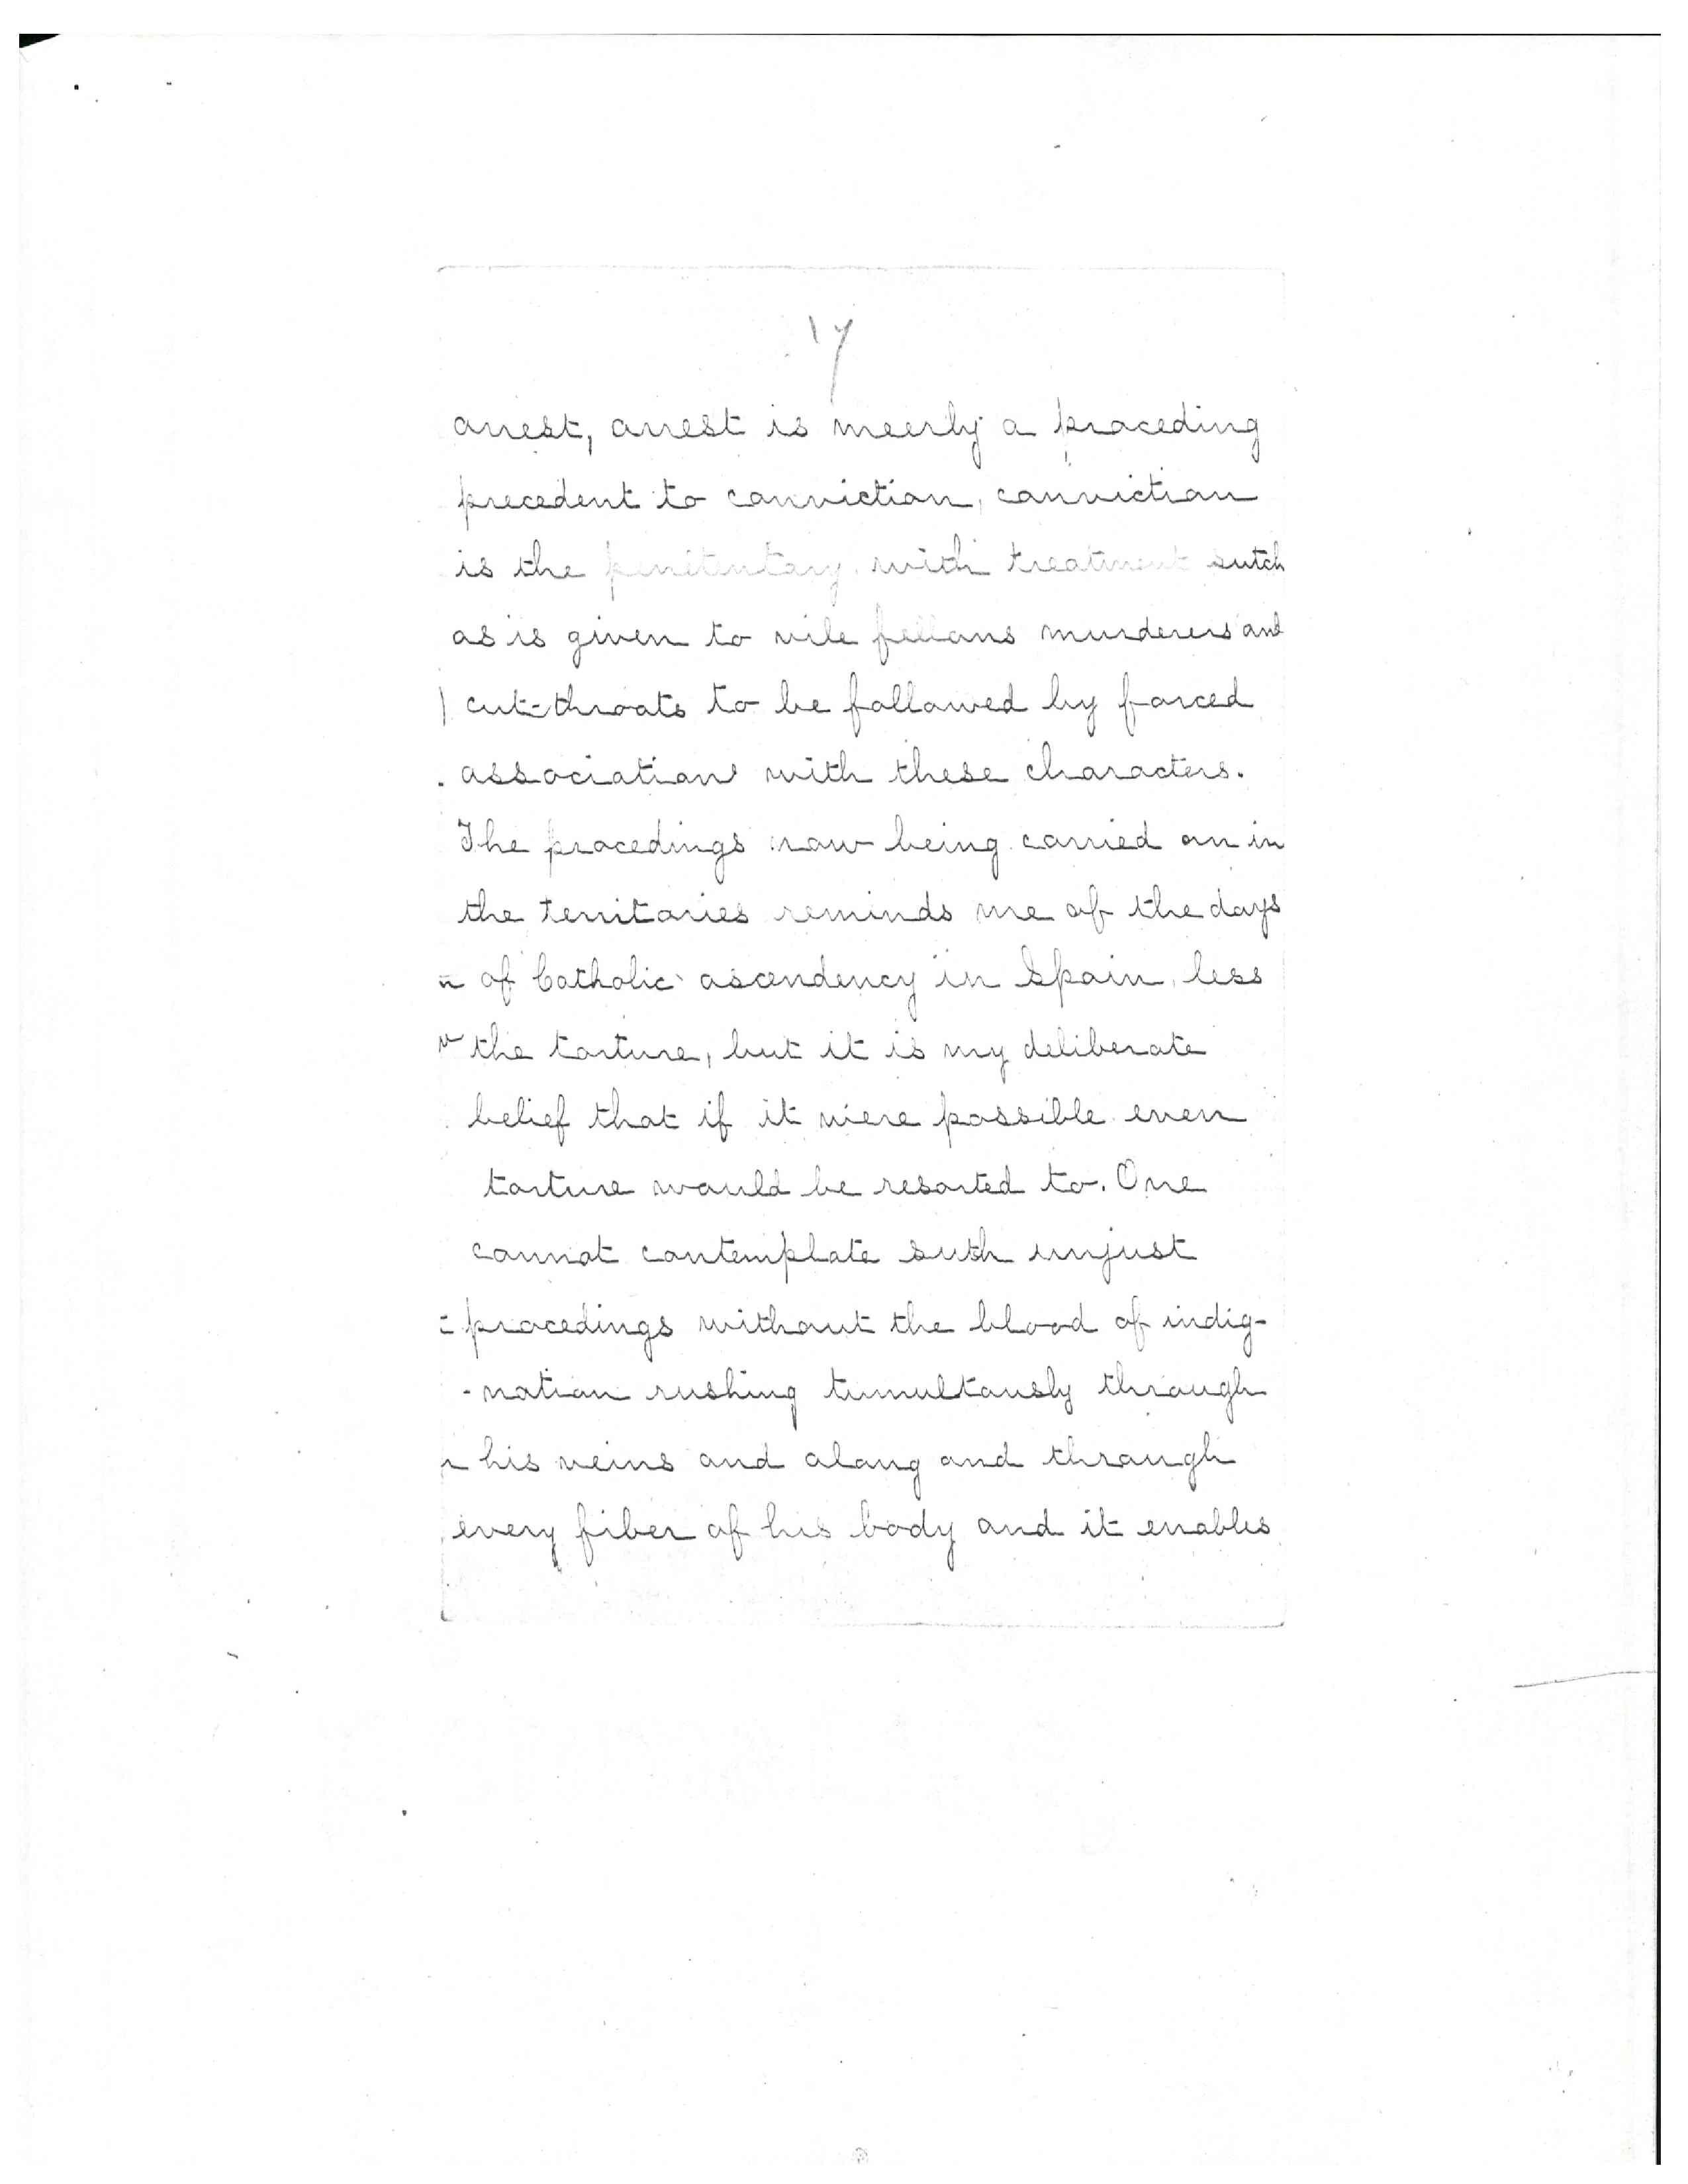 17
arrest, arrest is meerly a proceding
precedent to conviction, conviction
is the penitentary with treatment sutch
as is given to vile fellons murderers and
cut-throats to be followed by forced
association with these characters.
The procedings now being carried on in
the territories reminds me of the days
of Catholic ascendency in Spain, less
the torture, but it is my deliberate
belief that if it were possible even
torture would be resorted to. One
cannot contemplate such unjust
procedings without the blood of indig-
-nation rushing tumultously through
his veins and along and through
every fiber of his body and it enables